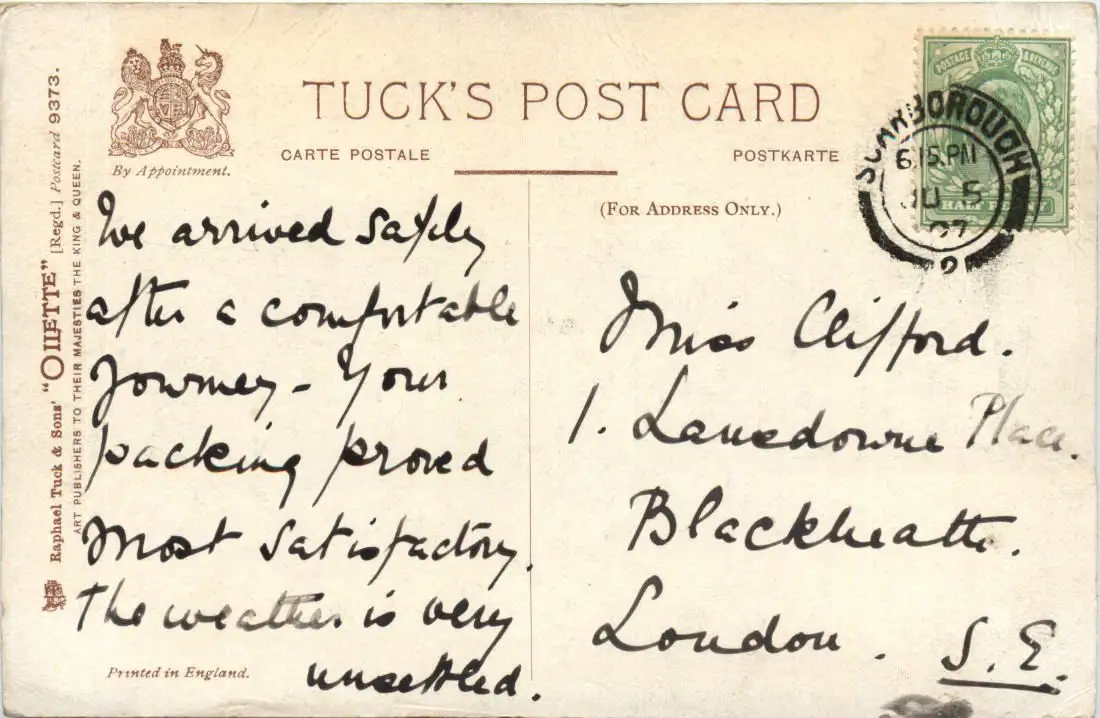 TUCK'S POST CARD
CARTE POSTALE
POSTKARTE
By Appointment.
(FOR ADDRESS ONLY.)
Raphael Tuck & Sons' "OILETTE" [Regd.] Postcard 9373.
ART PUBLISHERS TO THEIR MAJESTIES THE KING & QUEEN.
POSTAGE & REVENUE
HALF PENNY
SCARBOROUGH
6.15.PM
JU 5
07
2
We arrived safely
after a comfortable
journey - Your
packing proved
most satisfactory.
The weather is very
unsettled.
Printed in England.
Miss Clifford.
1. Lansdowne Place.
Blackheath.
London. S.E.